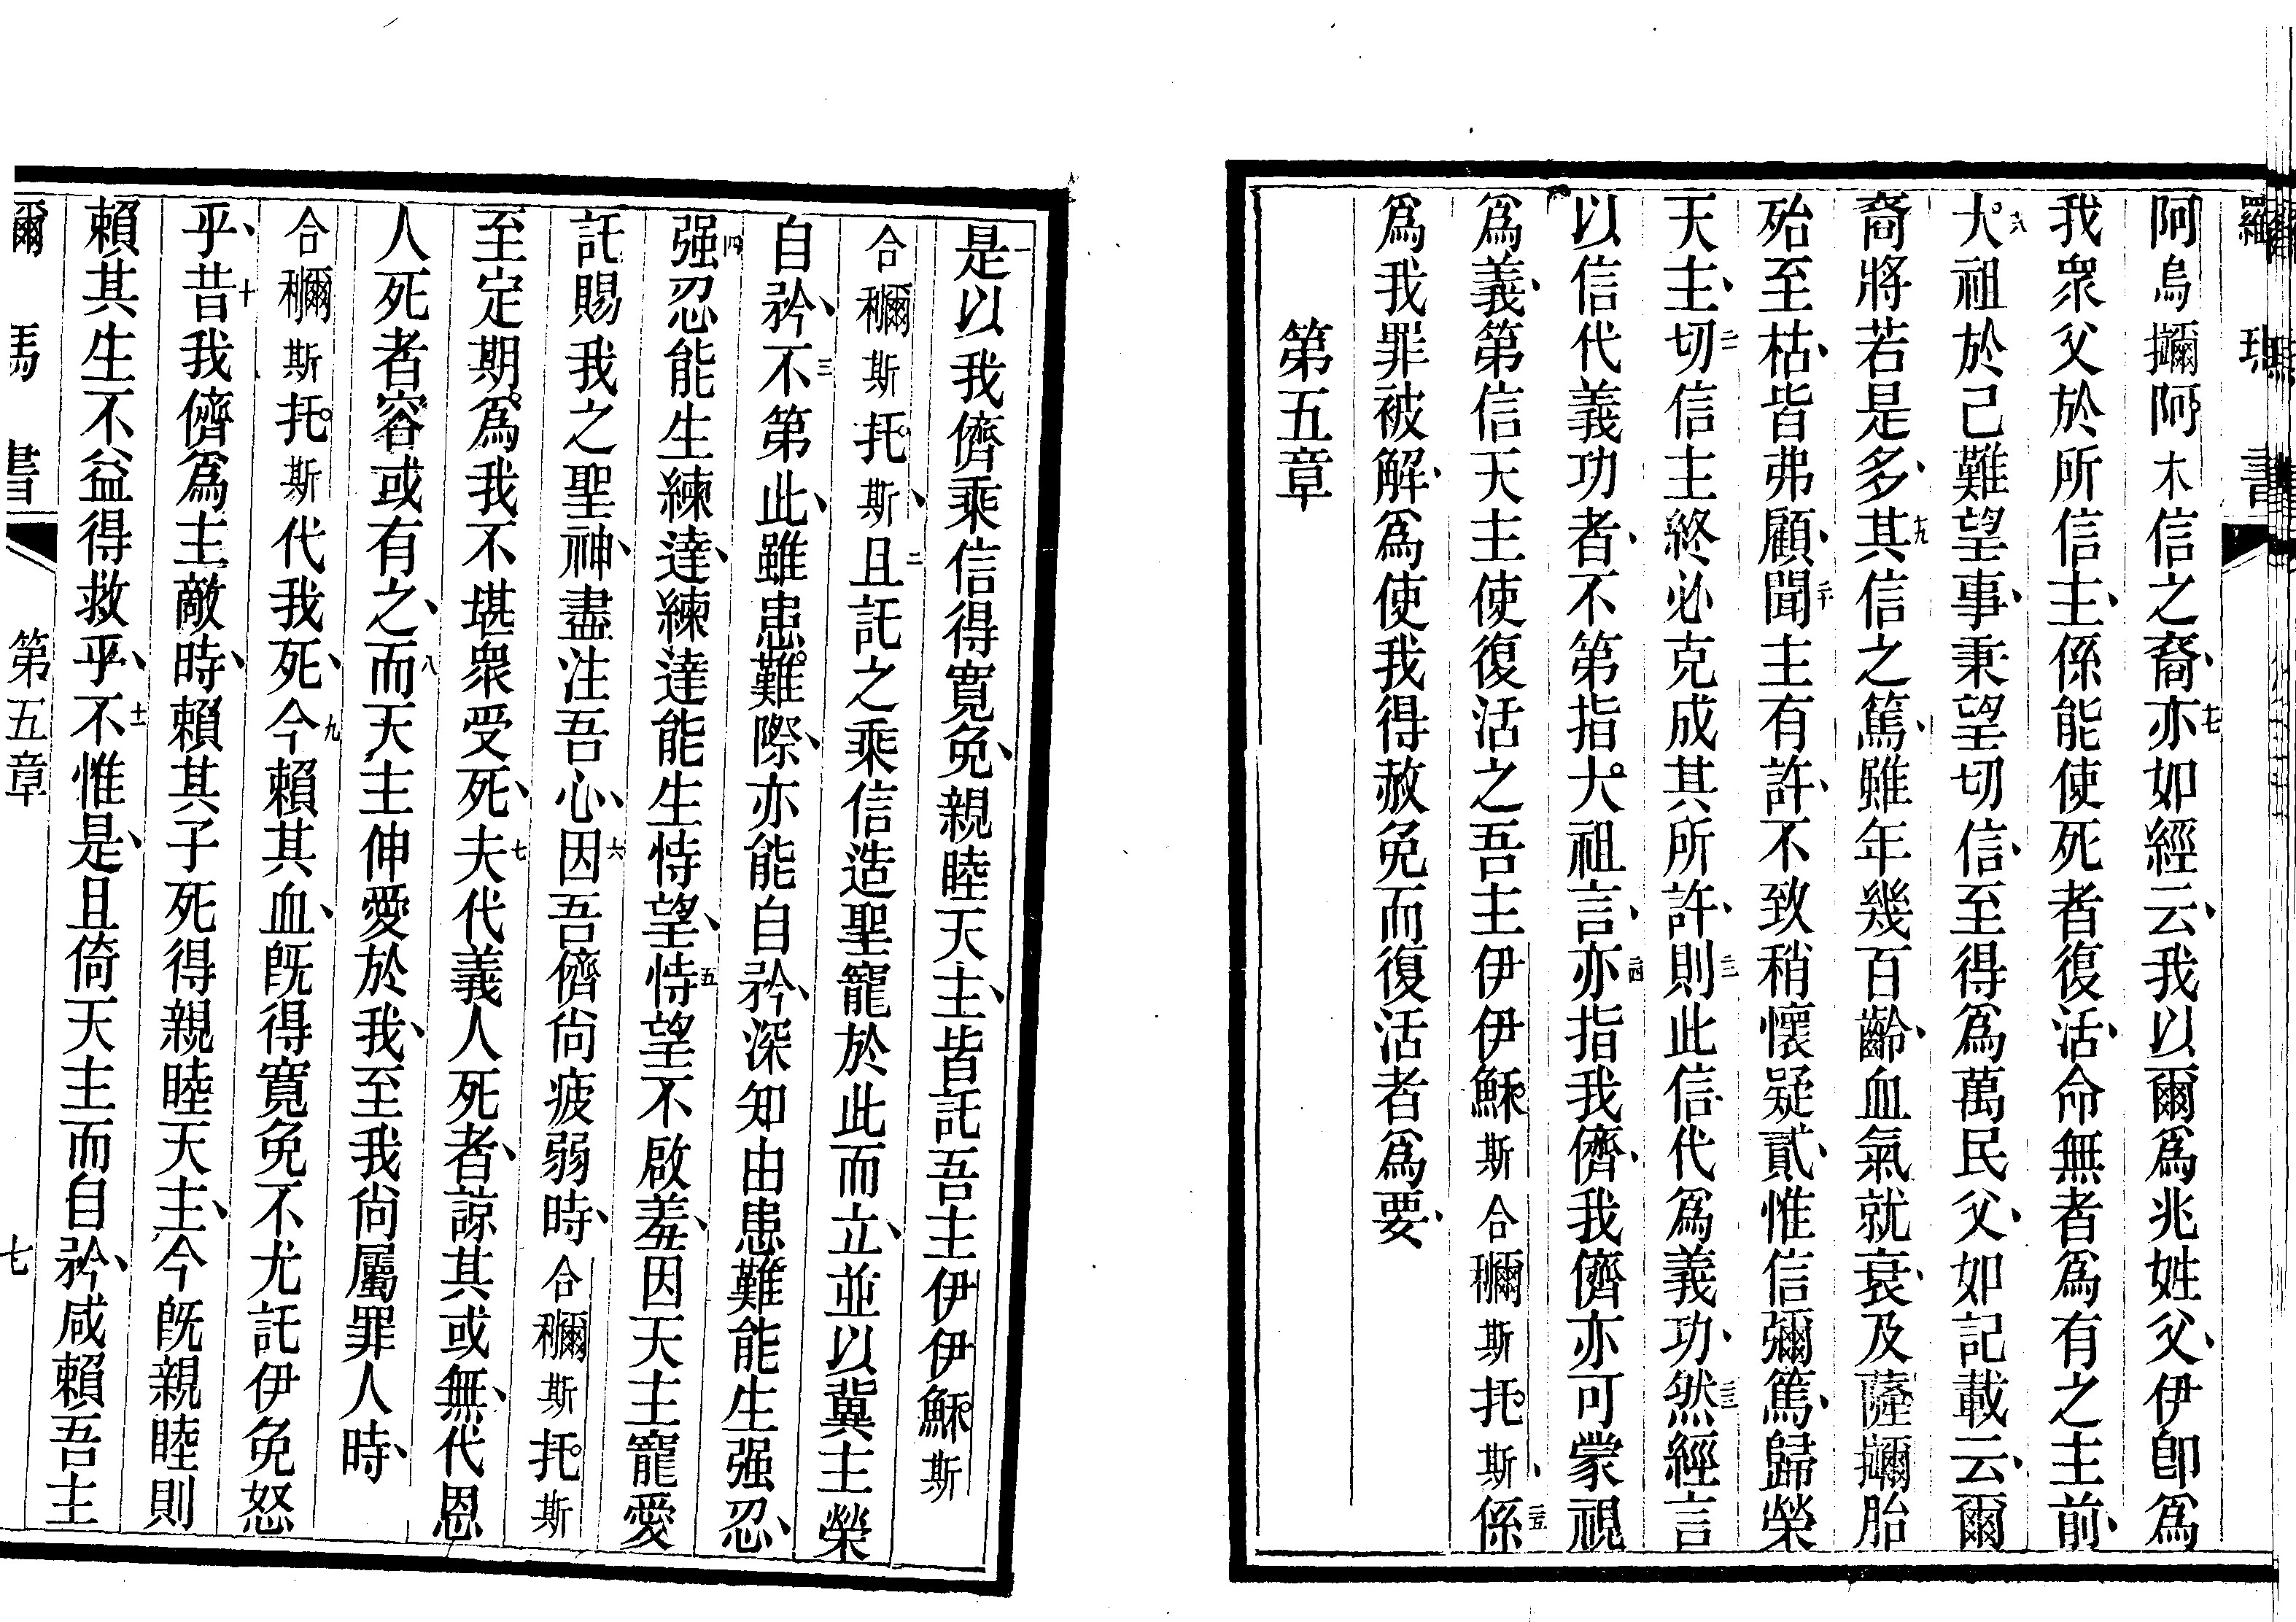 阿烏𢹂阿木信之裔、亦如經云、我以爾爲兆姓父、伊卽爲
我衆父於所信主、係能使死者復活、命無者爲有之主前、
大祖於己難望事、秉望切信、至得爲萬民父、如記載云、爾
裔將若是多、其信之篤、雖年幾百齡、血氣就衰、及薩𢹂胎
殆至枯、皆弗顧、聞主有許、不致稍懷疑貳、惟信彌篤、歸榮
天主、切信主終必克成其所許、則此信代爲義功、然經言
以信代義功者、不第指大祖言、亦指我儕、我儕亦可蒙視
爲義、第信天主使復活之吾主伊伊穌斯合穪斯托斯、係
爲我罪被解、爲使我得赦免而復活者爲要、
第五章
是以我儕乘信得寬免、親睦天主、皆託吾主伊伊穌斯
合穪斯托斯、且託之乘信造聖寵於此而立、並以冀主榮
自矜、不第此、雖患難際、亦能自矜、深知由患難能生强忍、
强忍能生練達、練達能生恃望、恃望不啟羞、因天主寵愛
託賜我之聖神、盡注吾心、因吾儕尚疲弱時、合穪斯托斯
至定期爲我不堪衆受死、夫代義人死者、諒其或無、代恩
人死者容或有之、而天主伸愛於我、至我尚屬罪人時、
合穪斯托斯代我死、今賴其血、旣得寬免、不尤託伊免怒
乎、昔我儕爲主敵時、賴其子死得親睦天主、今旣親睦、則
賴其生不益得救乎、不惟是、且倚天主而自矜、咸賴吾主
爾 馬書 第五章 七